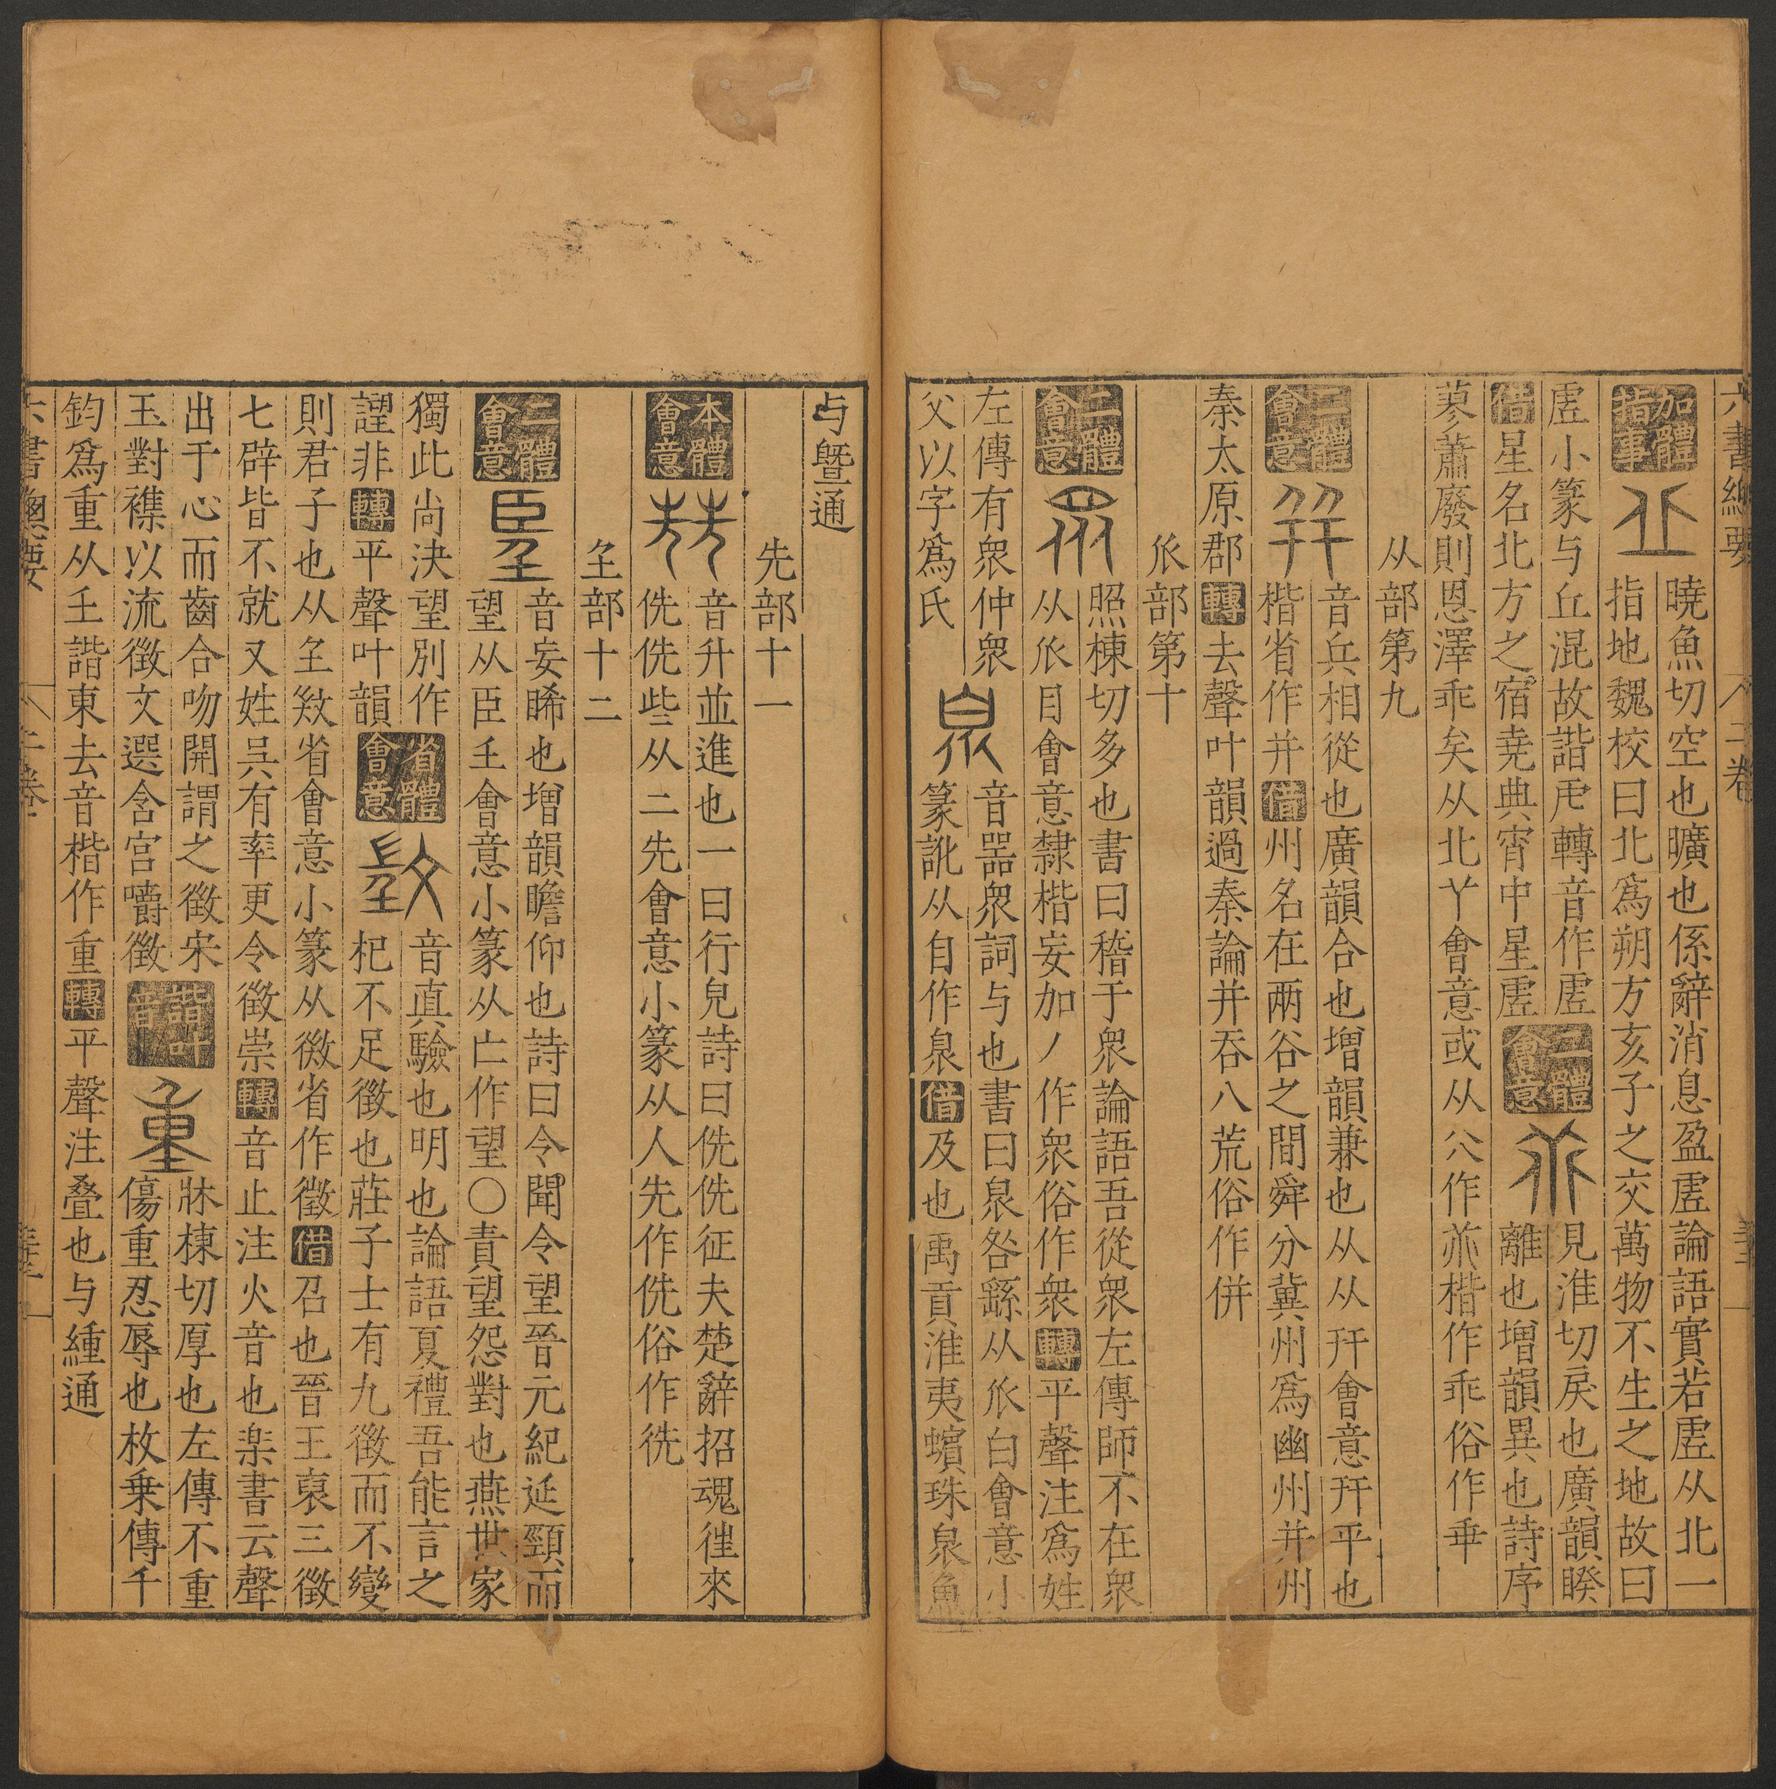 六書總要 二卷
加體指事
曉魚切空也曠也係辭消息盈虛論語實若虛从北一
指地魏校曰北爲朔方亥子之交萬物不生之地故曰
虛小篆与丘混故諧虍轉音作虛
借星名北方之宿堯典宵中星虛
二體會意
見淮切戾也廣韻睽
離也增韻異也詩序
蓼蕭廢則恩澤乖矣从北丫會意或从八作𠁥楷作乖俗作乖
从部第九
二體會意
音兵相從也廣韻合也增韻兼也从从幵會意幵平也
楷省作并借州名在兩谷之間舜分冀州爲幽州并州
秦太原郡轉去聲叶韻過秦論并吞八荒俗作併
㐺部第十
二體會意
照棟切多也書曰稽于衆論語吾從衆左傳師不在衆
从㐺目會意隸楷妄加丿作衆俗作眾轉平聲注爲姓
左傳有衆仲衆
父以字爲氏
音器衆詞与也書曰臮咎繇从㐺白會意小
篆訛从自作臮借及也禹貢淮夷蠙珠臮魚
与曁通
先部十一
本體會意
音升並進也一曰行皃詩曰侁侁征夫楚辭招魂徃來
侁侁些从二先會意小篆从人先作侁俗作㧥
𡈼部十二
二體會意
音妄睎也增韻瞻仰也詩曰令聞令望晉元紀延頸而
望从臣𡈼會意小篆从亡作望○責望怨對也燕世家
獨此尚決望別作
謹非轉平聲叶韻
省體會意
音眞驗也明也論語夏禮吾能言之
杞不足徵也莊子士有九徵而不變
則君子也从𡈼敚省會意小篆从微省作徵借召也晉王裒三徵
七辟皆不就又姓吳有率更令徵崇轉音止注火音也樂書云聲
出于心而齒合吻開謂之徵宋
玉對襍以流徵文選含宮嚼徵
諧叶音
牀棟切厚也左傳不重
傷重忍辱也枚乗傳千
鈞爲重从𡈼諧東去音楷作重轉平聲注叠也与緟通
六書總要 二卷